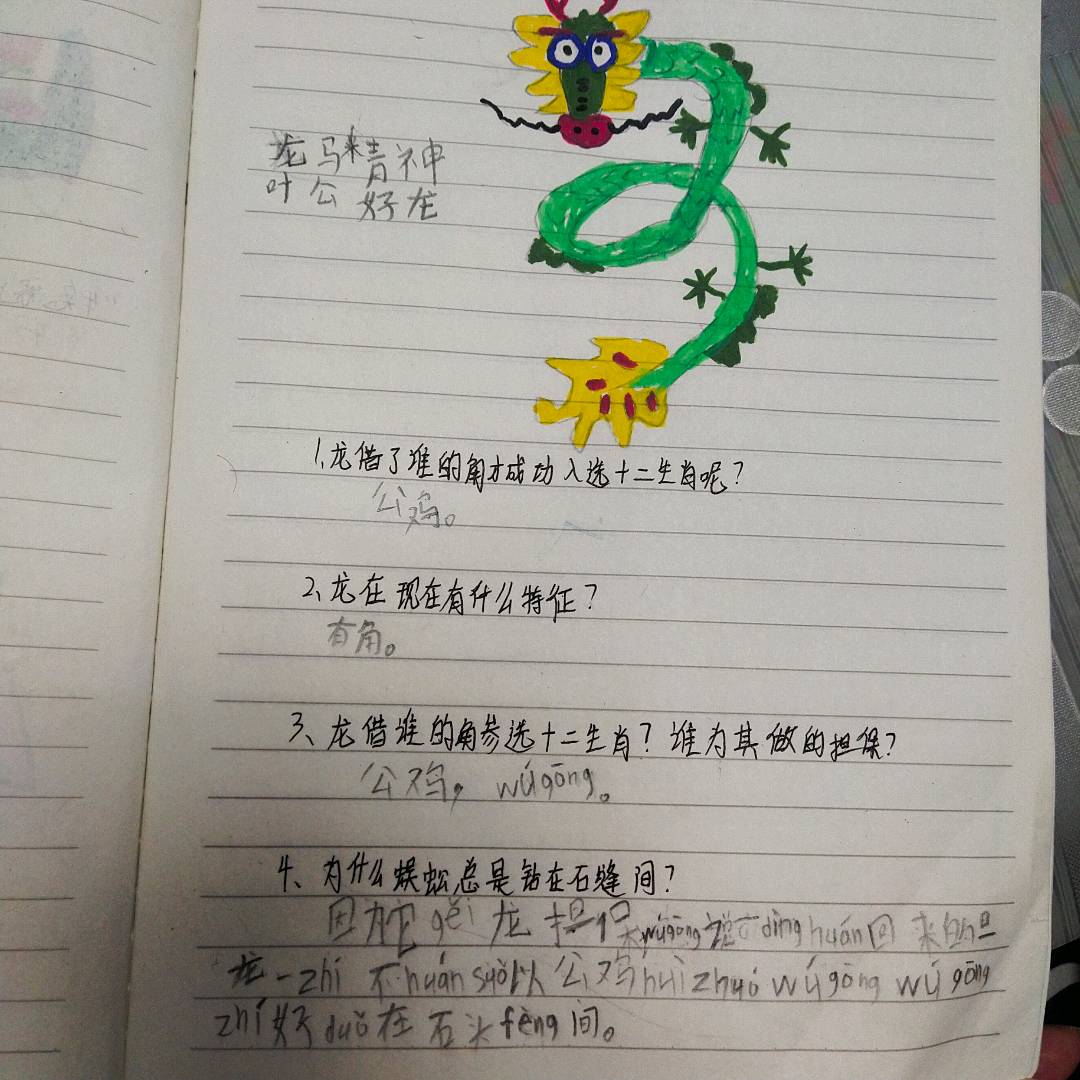 龙马精神
叶公好龙
1、龙借了谁的角才成功入选十二生肖呢？
公鸡。
2、龙在现在有什么特征？
有角。
3、龙借谁的角参选十二生肖？谁为其做的担保？
公鸡，wúgōng。
4、为什么蜈蚣总是钻在石缝间？
因为它gěi龙担保wúgōng说一dìng huán回来的但
龙一zhí不huán suǒ以公鸡huì zhuó wúgōng wúgōng
zhí好duǒ在石头fèng间。